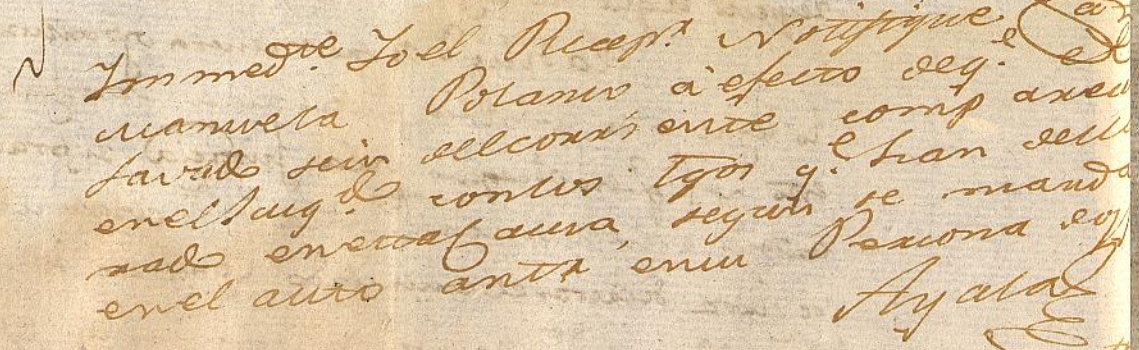 Immedte. Yo el Recepr. Notifiqué a
Manuela Polanco à efecto deq.e el
savado seis delcorriente comparez
enel Juzg.do conlos tgos q.e han decla
rado enesta Causa, segun se manda
enel auto antr. ensu Persona doy
Ayala